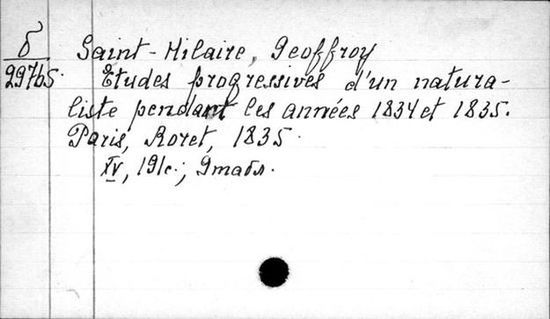 б
29765
Saint-Hilaire, Geoffroy
Etudes progressives d'un natura-
liste pendant les années 1834 et 1835.
Paris, Roret, 1835.
XV, 191с.; 9табл.